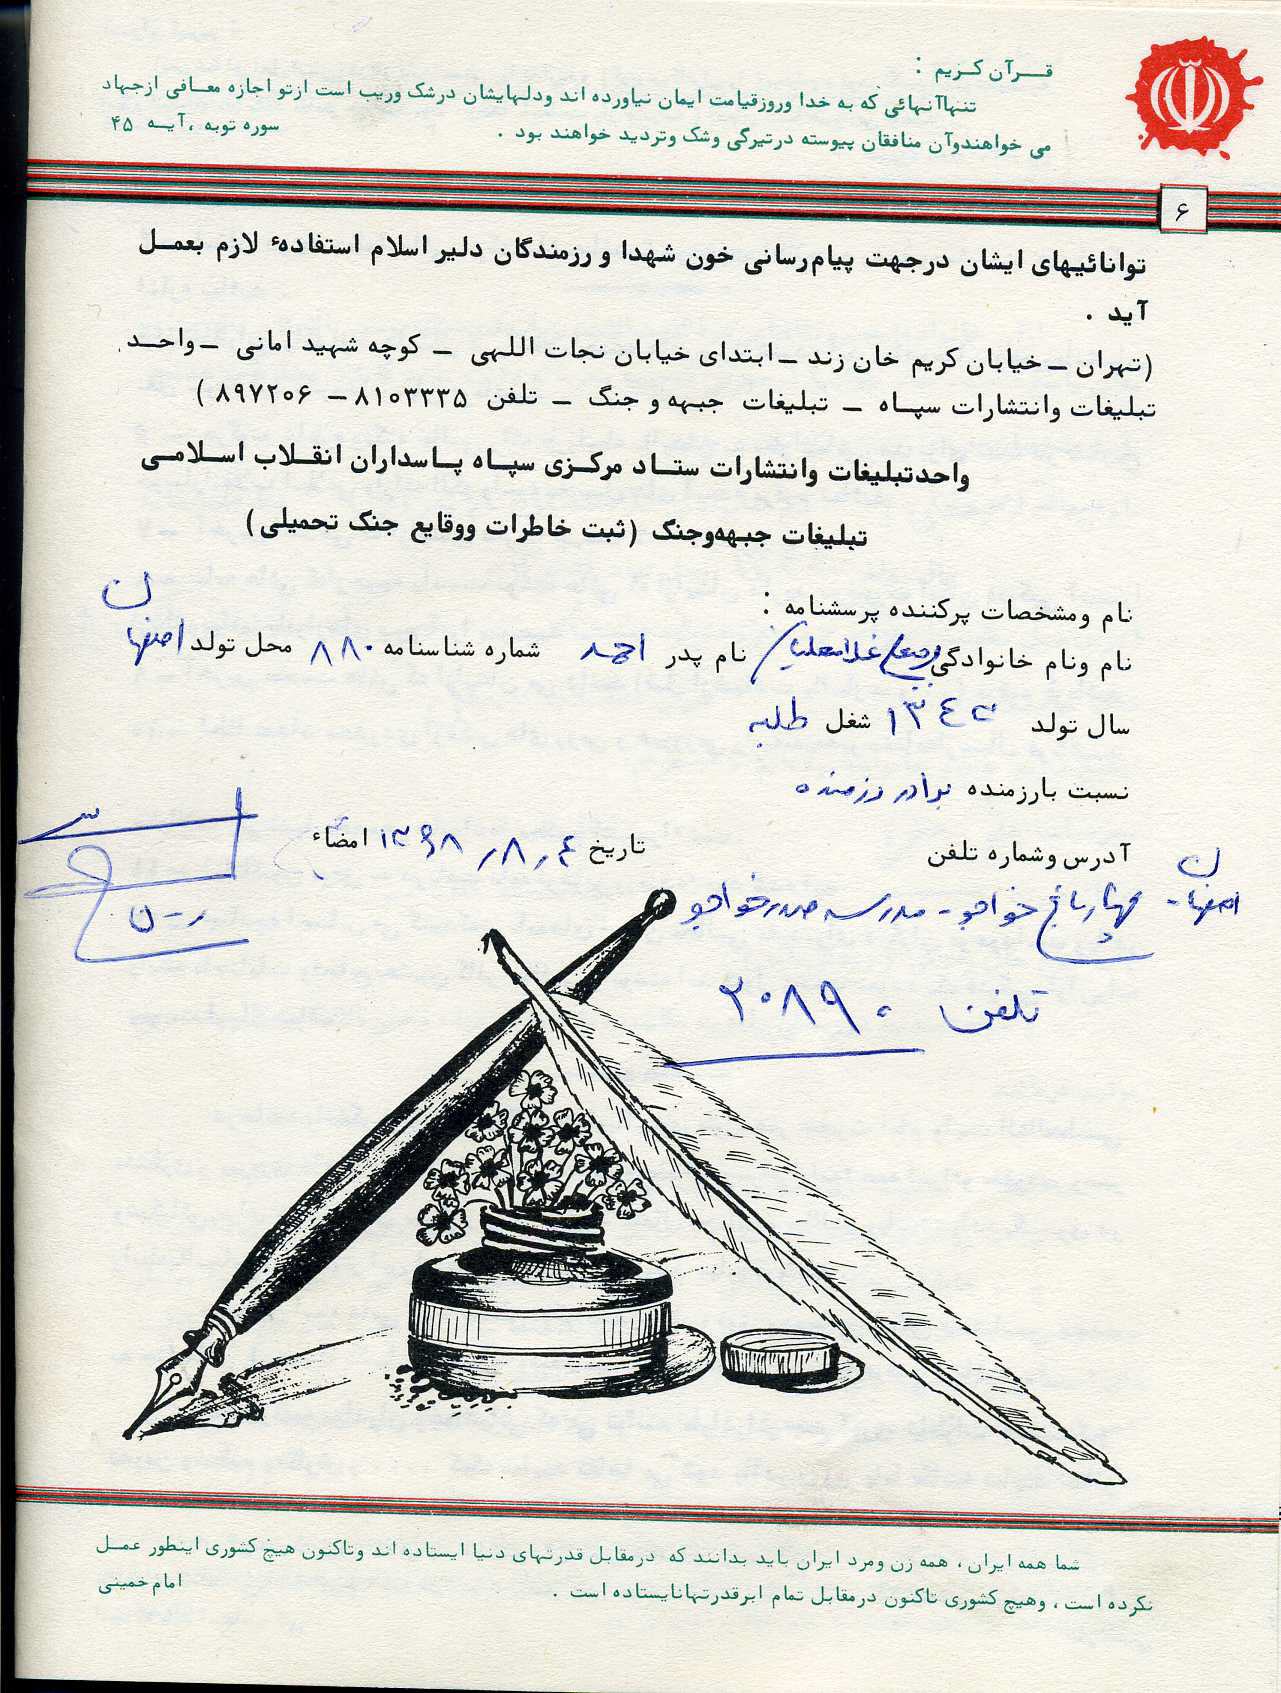 قـــرآن کـریم :
تنهاآنهائی که به خدا وروزقیامت ایمان نیاورده اند ودلهایشان درشک وریب است ازتو اجازه معـافی ازجهاد
می خواهندوآن منافقان پیوسته درتیرگی وشک وتردید خواهند بود . سوره توبه ،آیـه ۴۵
۶
توانائیهای ایشان درجهت پیام‌رسانی خون شهدا و رزمندگان دلیر اسلام استفادهٔ لازم بعمـل
آید .
(تهران ـ خیابان کریم خان زند ـ ابتدای خیابان نجات اللهی ـ کوچه شهید امانی ـ واحـد
تبلیغات وانتشارات سپـاه ـ تبلیغات جبهه و جنگ ـ تلفن ۸۱۰۳۳۳۵ – ۸۹۷۲۰۶ )
واحدتبلیغات وانتشارات ستـاد مرکـزی سپـاه پـاسداران انقـلاب اسـلامـی
تبلیغات جبهه‌وجنگ (ثبت خاطرات ووقایع جنگ تحمیلی)
نام ومشخصات پرکننده پرسشنامه :
نام ونام خانوادگی غلامعلیان نام پدر احمد شماره شناسنامه ۸۸۰ محل تولد اصفهان
سال تولد ۱۳۴۲ شغل طلبه
نسبت بارزمنده برادر رزمنده
آدرس وشماره تلفن تاریخ ۱۳۶۸/۸/۴ امضاء
اصفهان - چهارباغ خواجو - مدرسه صدر خواجو
تلفن ۲۰۸۹۰
شما همه ایران ، همه زن ومرد ایران باید بدانند که درمقابل قدرتهای دنیا ایستاده اند وتاکنون هیچ کشوری اینطور عمـل
نکرده است ، وهیچ کشوری تاکنون درمقابل تمام ابرقدرتهانایستاده است . امام‌خمینی